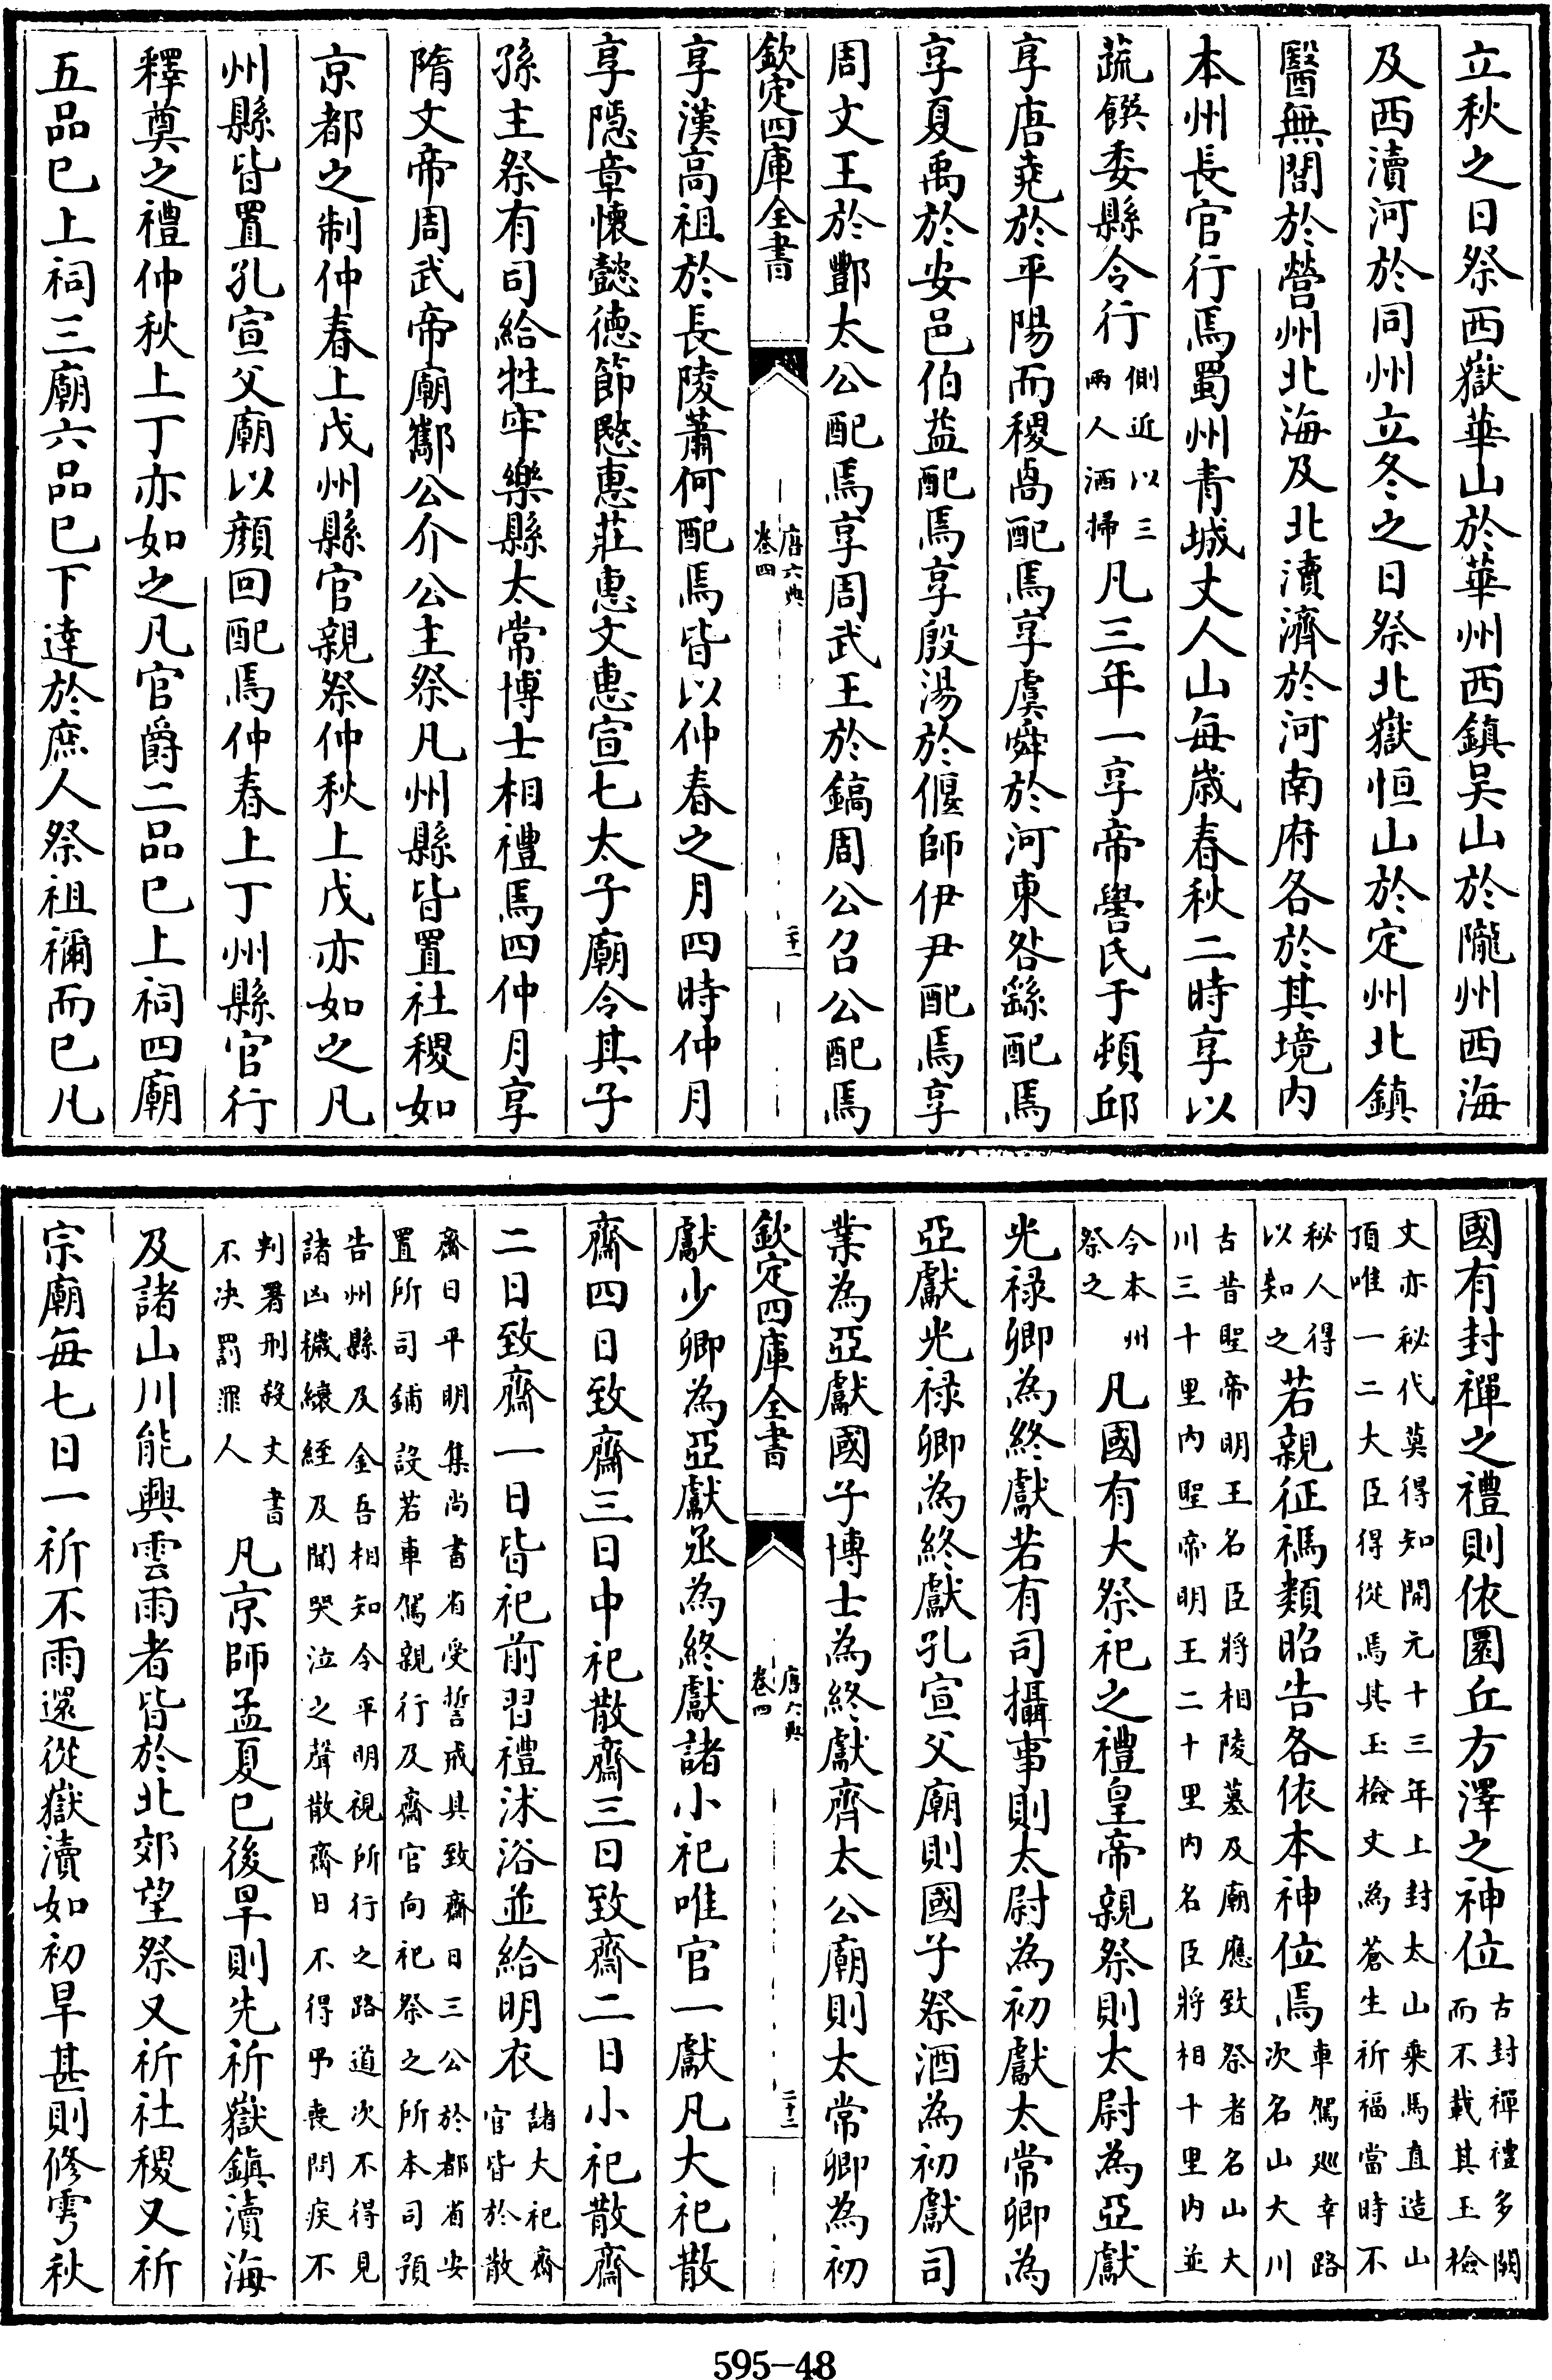 立秋之日祭西嶽華山於華州西鎮吴山於隴州西海
及西瀆河於同州立冬之日祭北嶽恒山於定州北鎮
醫無閭於營州北海及北瀆濟於河南府各於其境内
本州長官行焉蜀州青城丈人山每歲春秋二時享以
蔬饌委縣令行側近以三兩人洒掃凡三年一享帝嚳氏于頓邱
享唐堯於平陽而稷卨配焉享虞舜於河東咎繇配焉
享夏禹於安邑伯益配焉享殷湯於偃師伊尹配焉享
周文王於酆太公配焉享周武王於鎬周公召公配焉
欽定四庫全書 唐六典卷四 二十一
享漢高祖於長陵蕭何配焉皆以仲春之月四時仲月
享隱章懷懿德節愍惠莊惠文惠宣七太子廟令其子
孫主祭有司給牲牢樂縣太常博士相禮焉四仲月享
隋文帝周武帝廟酅公介公主祭凡州縣皆置社稷如
京都之制仲春上戊州縣官親祭仲秋上戊亦如之凡
州縣皆置孔宣父廟以顔回配焉仲春上丁州縣官行
釋奠之禮仲秋上丁亦如之凡官爵二品已上祠四廟
五品已上祠三廟六品已下達於庶人祭祖禰而已凡
國有封禪之禮則依圜丘方澤之神位古封禪禮多闕而不載其玉檢
文亦秘代莫得知開元十三年上封太山乘馬直造山頂唯一二大臣得從焉其玉檢文為蒼生祈福當時不
秘人人得以知之若親征禡類昭告各依本神位焉車駕廵幸路次名山大川
古昔聖帝明王名臣將相陵墓及廟應致祭者名山大川三十里内聖帝明王二十里内名臣將相十里内並
令本州祭之凡國有大祭祀之禮皇帝親祭則太尉為亞獻
光禄卿為終獻若有司攝事則太尉為初獻太常卿為
亞獻光禄卿為終獻孔宣父廟則國子祭酒為初獻司
業為亞獻國子博士為終獻齊太公廟則太常卿為初
欽定四庫全書 唐六典卷四 二十二
獻少卿為亞獻丞為終獻諸小祀唯官一獻凡大祀散
齋四日致齋三日中祀散齋三日致齋二日小祀散齋
二日致齋一日皆祀前習禮沐浴並給明衣諸大祀齋官皆於散
齋日平明集尚書省受誓戒具致齋日三公於都省安置所司鋪設若車駕親行及齋官向祀祭之所本司預
告州縣及金吾相知令平明視所行之路道次不得見諸凶穢縗絰及聞哭泣之聲散齋日不得弔喪問疾不
判署刑殺文書不決罰罪人凡京師孟夏已後旱則先祈嶽鎮瀆海
及諸山川能興雲雨者皆於北郊望祭又祈社稷又祈
宗廟每七日一祈不雨還從嶽瀆如初旱甚則修雩秋
595-48